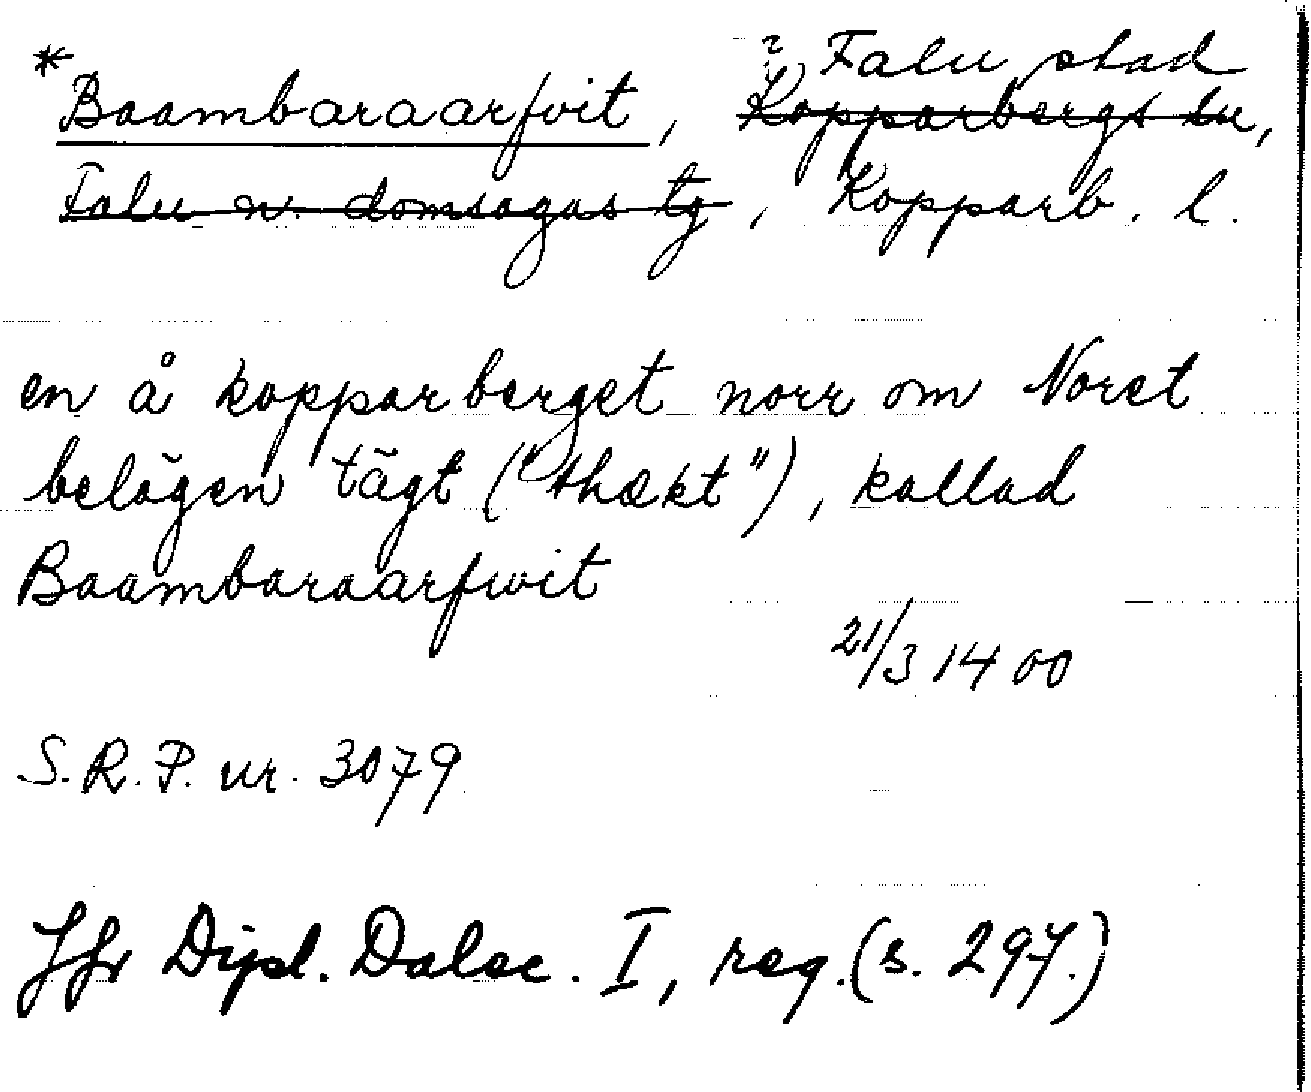 * Baambaraarfvit, ? Falu stad
Kopparbergs sn,
Falu n. domsagas tg, Kopparb. l.
en å kopparberget norr om Noret
belägen tägt ("thækt"), kallad
Baambaraarfwit
21/3 1400
S.R.P. nr. 3079
Jfr Dipl. Dalec. I, reg. (s. 297.)